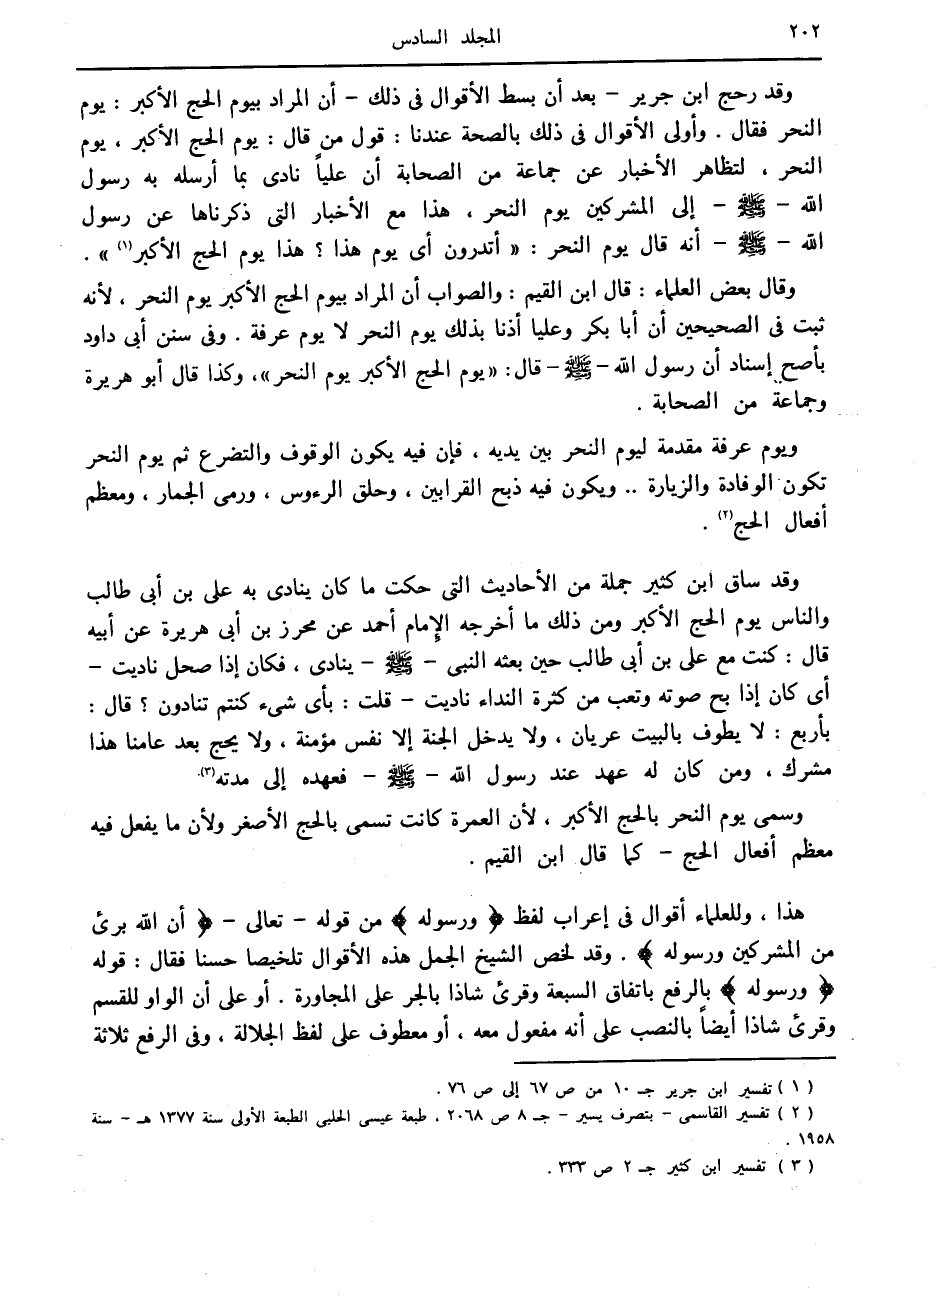 ٢٠٢
المجلد السادس
وقد رحج ابن جرير – بعد أن بسط الأقوال فى ذلك – أن المراد بيوم الحج الأكبر : يوم
النحر فقال . وأولى الأقوال فى ذلك بالصحة عندنا : قول من قال : يوم الحج الأكبر ، يوم
النحر ، لتظاهر الأخبار عن جماعة من الصحابة أن علياً نادى بما أرسله به رسول
الله – ﷺ – إلى المشركين يوم النحر ، هذا مع الأخبار التى ذكرناها عن رسول
الله – ﷺ – أنه قال يوم النحر : « أتدرون أى يوم هذا ؟ هذا يوم الحج الأكبر(١) » .
وقال بعض العلماء : قال ابن القيم : والصواب أن المراد بيوم الحج الأكبر يوم النحر ، لأنه
ثبت فى الصحيحين أن أبا بكر وعليا أذنا بذلك يوم النحر لا يوم عرفة . وفى سنن أبى داود
بأصح إسناد أن رسول الله – ﷺ – قال: «يوم الحج الأكبر يوم النحر»، وكذا قال أبو هريرة
وجماعة من الصحابة .
ويوم عرفة مقدمة ليوم النحر بين يديه ، فإن فيه يكون الوقوف والتضرع ثم يوم النحر
تكون الوفادة والزيارة .. ويكون فيه ذبح القرابين ، وحلق الرءوس ، ورمى الجمار ، ومعظم
أفعال الحج(٢) .
وقد ساق ابن كثير جملة من الأحاديث التى حكت ما كان ينادى به على بن أبى طالب
والناس يوم الحج الأكبر ومن ذلك ما أخرجه الإمام أحمد عن محرز بن أبى هريرة عن أبيه
قال : كنت مع على بن أبى طالب حين بعثه النبى – ﷺ – ينادى ، فكان إذا صحل ناديت –
أى كان إذا بح صوته وتعب من كثرة النداء ناديت – قلت : بأى شىء كنتم تنادون ؟ قال :
بأربع : لا يطوف بالبيت عريان ، ولا يدخل الجنة إلا نفس مؤمنة ، ولا يحج بعد عامنا هذا
مشرك ، ومن كان له عهد عند رسول الله – ﷺ – فعهده إلى مدته(٣).
وسمى يوم النحر بالحج الأكبر ، لأن العمرة كانت تسمى بالحج الأصغر ولأن ما يفعل فيه
معظم أفعال الحج – كما قال ابن القيم .
هذا ، وللعلماء أقوال فى إعراب لفظ ﴿ ورسوله ﴾ من قوله – تعالى – ﴿ أن الله برئ
من المشركين ورسوله ﴾ . وقد لخص الشيخ الجمل هذه الأقوال تلخيصا حسنا فقال : قوله
﴿ ورسوله ﴾ بالرفع باتفاق السبعة وقرئ شاذا بالجر على المجاورة . أو على أن الواو للقسم
وقرئ شاذا أيضاً بالنصب على أنه مفعول معه ، أو معطوف على لفظ الجلالة ، وفى الرفع ثلاثة
( ١ ) تفسير ابن جرير جـ ١٠ من ص ٦٧ إلى ص ٧٦ .
( ٢ ) تفسير القاسمى – بتصرف يسير – جـ ٨ ص ٢٠٦٨ ، طبعة عيسى الحلبى الطبعة الأولى سنة ١٣٧٧ هـ – سنة
١٩٥٨ .
( ٣ ) تفسير ابن كثير جـ ٢ ص ٣٣٣ .